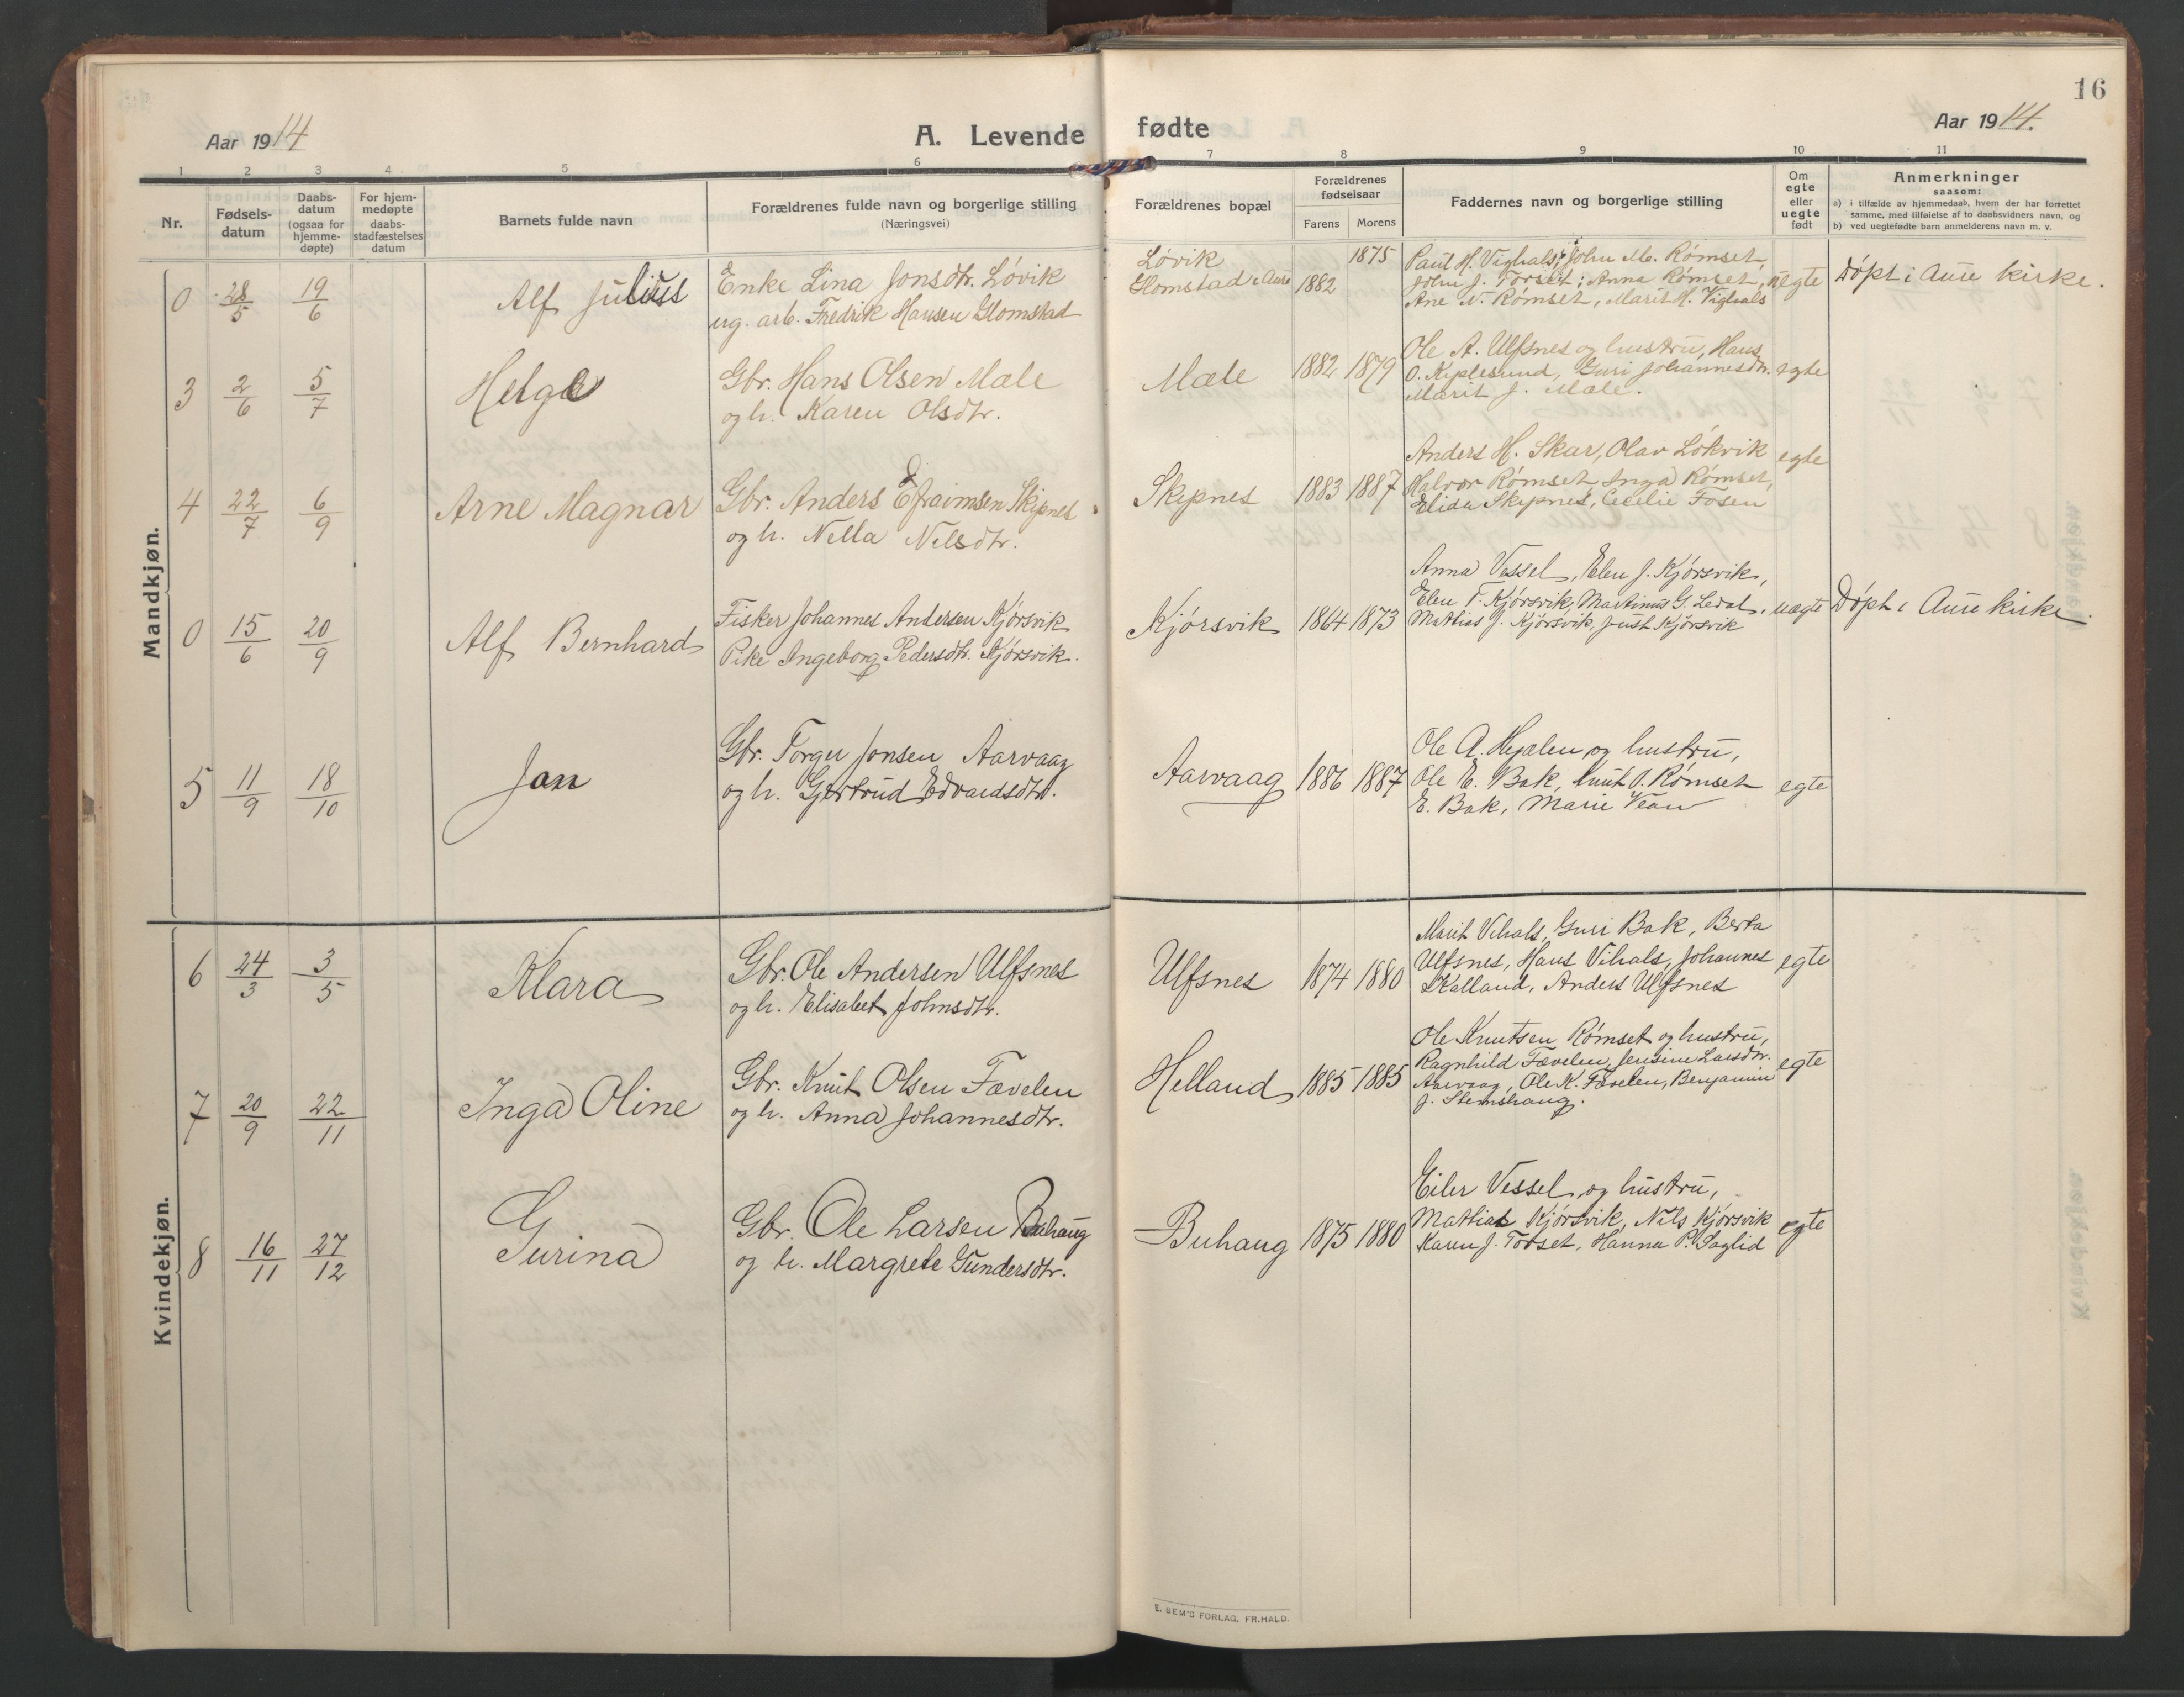 16
Aar 1914
A. Levende fødte
Aar 1914.
1 2 3 4 5 6 7 8 9 10 11
Nr.
Fødsels-
datum
Daabs-
datum
(ogsaa for
hjemme-
døpte)
For hjem-
medøpte
daabs-
stadfæstelses
datum
Barnets fulde navn
Forældrenes fulde navn og borgerlige stilling
(Næringsvei)
Forældrenes bopæl
Forældrenes
fødselsaar
Farens Morens
Faddernes navn og borgerlige stilling
Om
egte
eller
uegte
født
Anmerkninger
saasom:
a) i tilfælde av hjemmedaab, hvem der har forrettet
samme, med tilføielse af to daabsvidners navn, og
b) ved uegtefødte barn anmelderens navn m. v.
Mandkjøn.
0 28/5 19/6 Alf Julius
Enke Lina Jonsdtr. Løvik
ug. arb. Fredrik Hansen Glomstad
Løvik
Glomstad i Aure 1882 1875
Paul H. Vighals; John M. Rømset,
John J. Torset; Anna Rømset,
Ane N. Rømset, Marit H. Vighals
uegte
Døpt i Aure kirke.
3 2/6 5/7 Helge
Gbr. Hans Olsen Mæle
og h. Karen Olsdtr.
Mæle 1882 1879
Ole A. Ulfsnes og hustru, Hans
O. Kiplesund, Guri Johannesdtr.
Marit J. Mæle.
egte
4 22/7 6/9 Arne Magnar
Gbr. Anders Efraimsen Skipnes
og h. Nella Nilsdtr.
Skipnes 1883 1887
Anders H. Skar, Olav Løkvik
Halvor Rømset, Inga Rømset,
Elida Skipnes, Cecilie Fosen
egte
0 15/6 20/9 Alf Bernhard
Fisker Johannes Andersen Kjørsvik
Pike Ingeborg Pedersdtr. Kjørsvik.
Kjørsvik 1864 1873
Anna Vessel, Elen J. Kjørsvik,
Elen T. Kjørsvik, Martinus G. Ledal,
Mathias J. Kjørsvik, Just Kjørsvik
uegte
Døpt i Aure kirke.
5 11/9 18/10 Jan
Gbr. Torger Jonsen Aarvaag
og h. Gjertrud Edvardsdtr.
Aarvaag 1886 1887
Ole A. Hejalen og hustru,
Ole E. Bak, Knut O. Rømset
E. Bak, Marie Vean
egte
Kvindekjøn.
6 24/3 3/5 Klara
Gbr. Ole Andersen Ulfsnes
og h. Elisabet Johnsdtr.
Ulfsnes 1874 1880
Marit Vihals, Guri Bak, Berta
Ulfsnes, Hans Vihals, Johannes
Kalland, Anders Ulfsnes
egte
7 20/9 22/11 Inga Oline
Gbr. Knut Olsen Fævelen
og h. Anna Johannesdtr.
Helland 1885 1885
Ole Knutsen Rømset og hustru,
Ragnhild Fævelen, Jensine Larsdtr.
Aarvaag, Ole K. Fævelen, Benjamin
J. Stemshaug.
egte
8 16/11 27/12 Gurina
Gbr. Ole Larsen Buhaug
og h. Margrete Gundersdtr.
Buhaug 1875 1880
Eiler Vessel og hustru,
Mathias Kjørsvik, Nils Kjørsvik
Karen J. Torset, Hanna P. Saglid
egte
E. SEM'S FORLAG, FR.HALD.